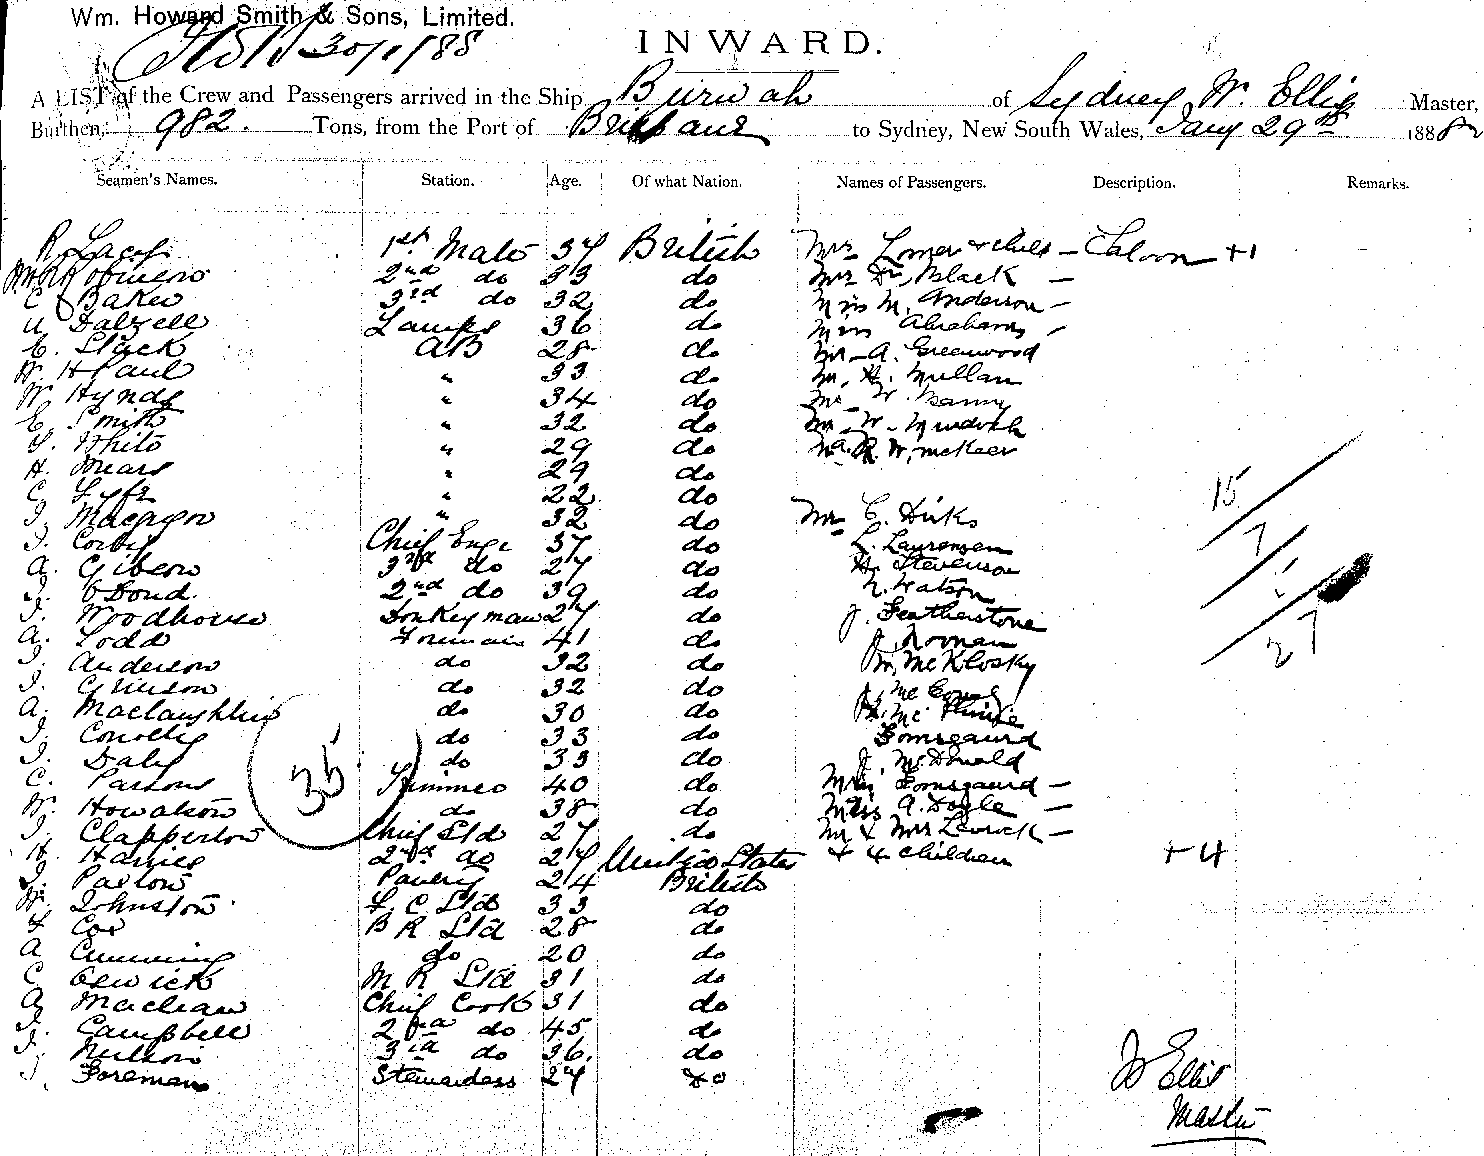 Wm. Howard Smith & Sons, Limited.
30/1/88
INWARD.
A LIST of the Crew and Passengers arrived in the Ship Burwah of Sydney W. Ellis Master,
Burthen, 982. Tons, from the Port of Brisbane to Sydney, New South Wales, Jany 29th 1888
Seamen's Names. Station. Age. Of what Nation. Names of Passengers. Description. Remarks.
R. 1st Mate 37 British Mrs Lomer & child - Saloon +1
2nd do 33 do Mrs Dr. Black -
C Baker 3rd do 32 do Miss M. Anderson -
Dalzell Lamps 36 do Miss Abrahams -
E. Slack AB 28 do Mr A. Greenwood
W. H Paul " 33 do Mr. H. Mullan
W. Hynds " 34 do Mr W.
E. Smith " 32 do Mr W. Murdoch
White " 29 do W. McKeer
H. Mears " 29 do
C. Fyfe " 22 do
J. Macgregor " 32 do Mr C. Hicks
J. Chief Engr 37 do L. Laurensen
A. Gibson 3rd do 27 do H. Stevenson
J. O Bond 2nd do 39 do Watson
J. Woodhouse Donkeyman 27 do J. Featherstone
A. Todd Fireman 41 do J. Noonan
J. Anderson do 32 do McKlosky
J. Grierson do 32 do Mc
A. Maclaughlin do 30 do Mc
J. Conolly do 33 do Fomsgaurd
J. Daly do 33 do J. McDonald
C. Parsons Trimmer 40 do Fomsgaurd -
W. Howatson do 38 do Miss A. Doyle -
J. Clapperton Chief Std 27 do Mr & Mrs Levick -
H. Harris 2nd do 27 United States + 4 children +4
J. Paxton Pantry 24 British
W. Johnston F. C Std 33 do
F Cox B R Std 28 do
A Cumming do 20 do
C. M R Std 31 do
A. Maclean Chief Cook 31 do
J. Campbell 2nd do 45 do
J. Neilson 3rd do 36. do
J. Foreman Stewardess 27 do
35
15
7
27
W Ellis
Master